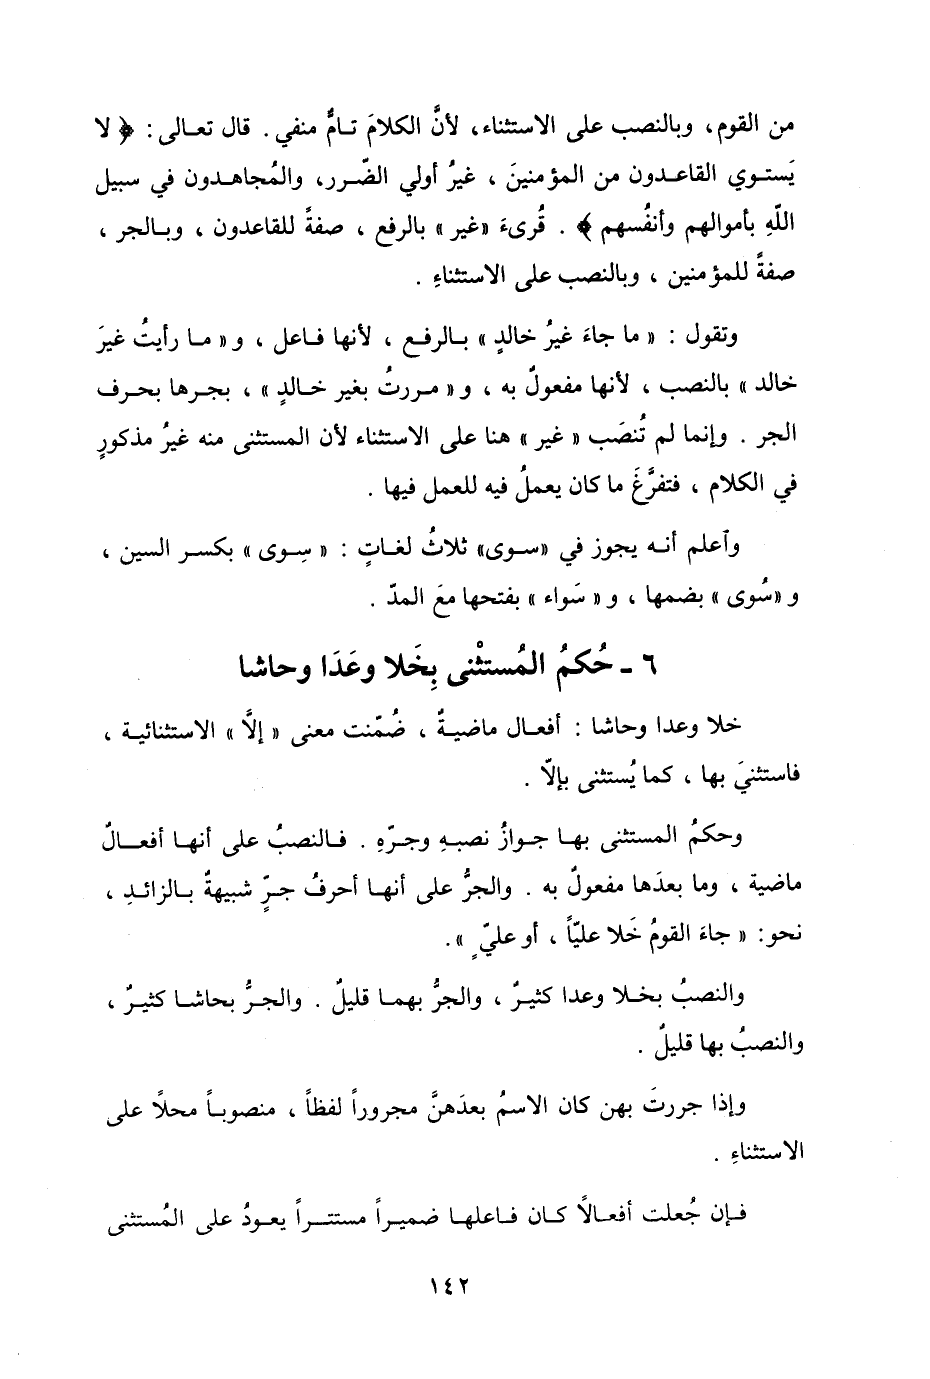 من القوم، وبالنصب على الاستثناء، لأنَّ الكلامَ تـامٌّ منفي. قال تعـالى: ﴿ لا
يَستـوي القاعـدون من المؤمنينَ ، غيرُ أولي الضّرر، والمُجاهـدون في سبيل
اللّهِ بأموالهم وأنفُسهم ﴾ . قُرىءَ «غير» بالرفع ، صفةً للقاعدون ، وبـالجر ،
صفةً للمؤمنين ، وبالنصب على الاستثناءِ .
وتقول : « ما جاءَ غيرُ خالدٍ » بـالرفـع ، لأنها فـاعل ، و« مـا رأيتُ غيرَ
خالد » بالنصب ، لأنها مفعولٌ به ، و« مـررتُ بغير خـالدٍ » ، بجـرها بحـرف
الجر . وإنما لم تُنصَب « غير » هنا على الاستثناء لأن المستثنى منه غيرُ مذكورٍ
في الكلام ، فتفرَّغَ ما كان يعملُ فيه للعمل فيها .
وآعلم أنـه يجوز في «سـوى» ثلاثُ لغـاتٍ : « سِـوى » بكسـر السين ،
و«سُوى » بضمها ، و« سَواء » بفتحها معَ المدّ .
٦ - حُكمُ المُستثْنى بِخَلا وعَدَا وحاشا
خلا وعدا وحاشا : أفعـال ماضيـةٌ ، ضُمّنت معنى « إلَّا » الاستثنائيـة ،
فاستثنيَ بها ، كما يُستثنى بإلاّ .
وحكمُ المستثنى بهـا جـوازُ نصبـهِ وجـرّهِ . فـالنصبُ على أنهـا أفعـالٌ
ماضية ، وما بعدَها مفعولٌ به . والجرُّ على أنهـا أحرفُ جـرّ شبيهةٌ بـالزائـدِ ،
نحو: « جاءَ القومُ خَلا عليّاً ، أو عليّ ٍ ».
والنصبُ بخـلا وعدا كثيـرٌ ، والجرُّ بهمـا قليلٌ . والجـرُّ بحاشـا كثيـرٌ ،
والنصبُ بها قليلٌ .
وإذا جررتَ بهن كان الاسمُ بعدَهنَّ مجروراً لفظاً ، منصوبـاً محلًا على
الاستثناءِ .
فـإن جُعلت أفعـالًا كـان فـاعلهـا ضميـراً مستتـراً يعودُ على المُستثنى
١٤٢